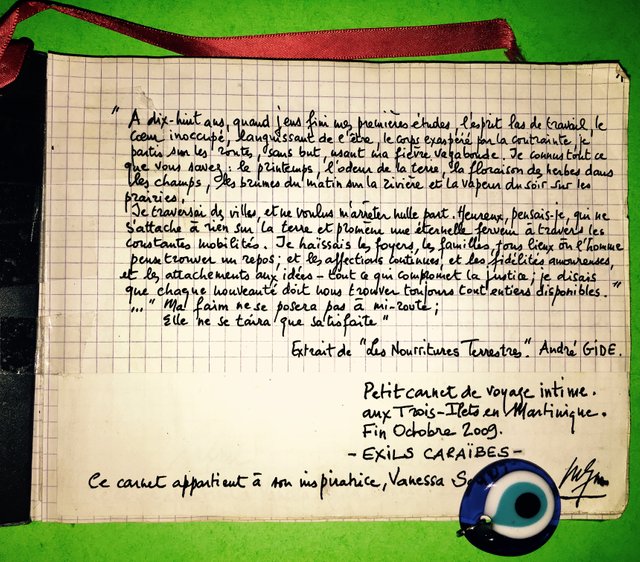 " A dix-huit ans, quand j'eus fini mes premières études, l'esprit las de travail, le
cœur inoccupé, languissant de l'être, le corps exaspéré par la contrainte, je
partis sur les routes, sans but, usant ma fièvre vagabonde. Je connus tout ce
que vous savez : le printemps, l'odeur de la terre, la floraison des herbes dans
les champs, les brumes du matin sur la rivière et la vapeur du soir sur les
prairies.
Je traversai des villes, et ne voulus m'arrêter nulle part. Heureux, pensais-je, qui ne
s'attache à rien sur la terre et promène une éternelle ferveur à travers les
constantes mobilités. Je haïssais les foyers, les familles, tous lieux où l'homme
pense trouver un repos ; et les affections continues, et les fidélités amoureuses,
et les attachements aux idées - tout ce qui compromet la justice ; je disais
que chaque nouveauté doit nous trouver toujours tout entiers disponibles "
..." Ma faim ne se posera pas à mi-route ;
Elle ne se taira que satisfaite "
Extrait de "Les Nourritures Terrestres". André GIDE.
Petit carnet de voyage intime.
aux Trois-Ilets en Martinique.
Fin Octobre 2009.
- EXILS CARAÏBES -
Ce carnet appartient à son inspiratrice, Vanessa